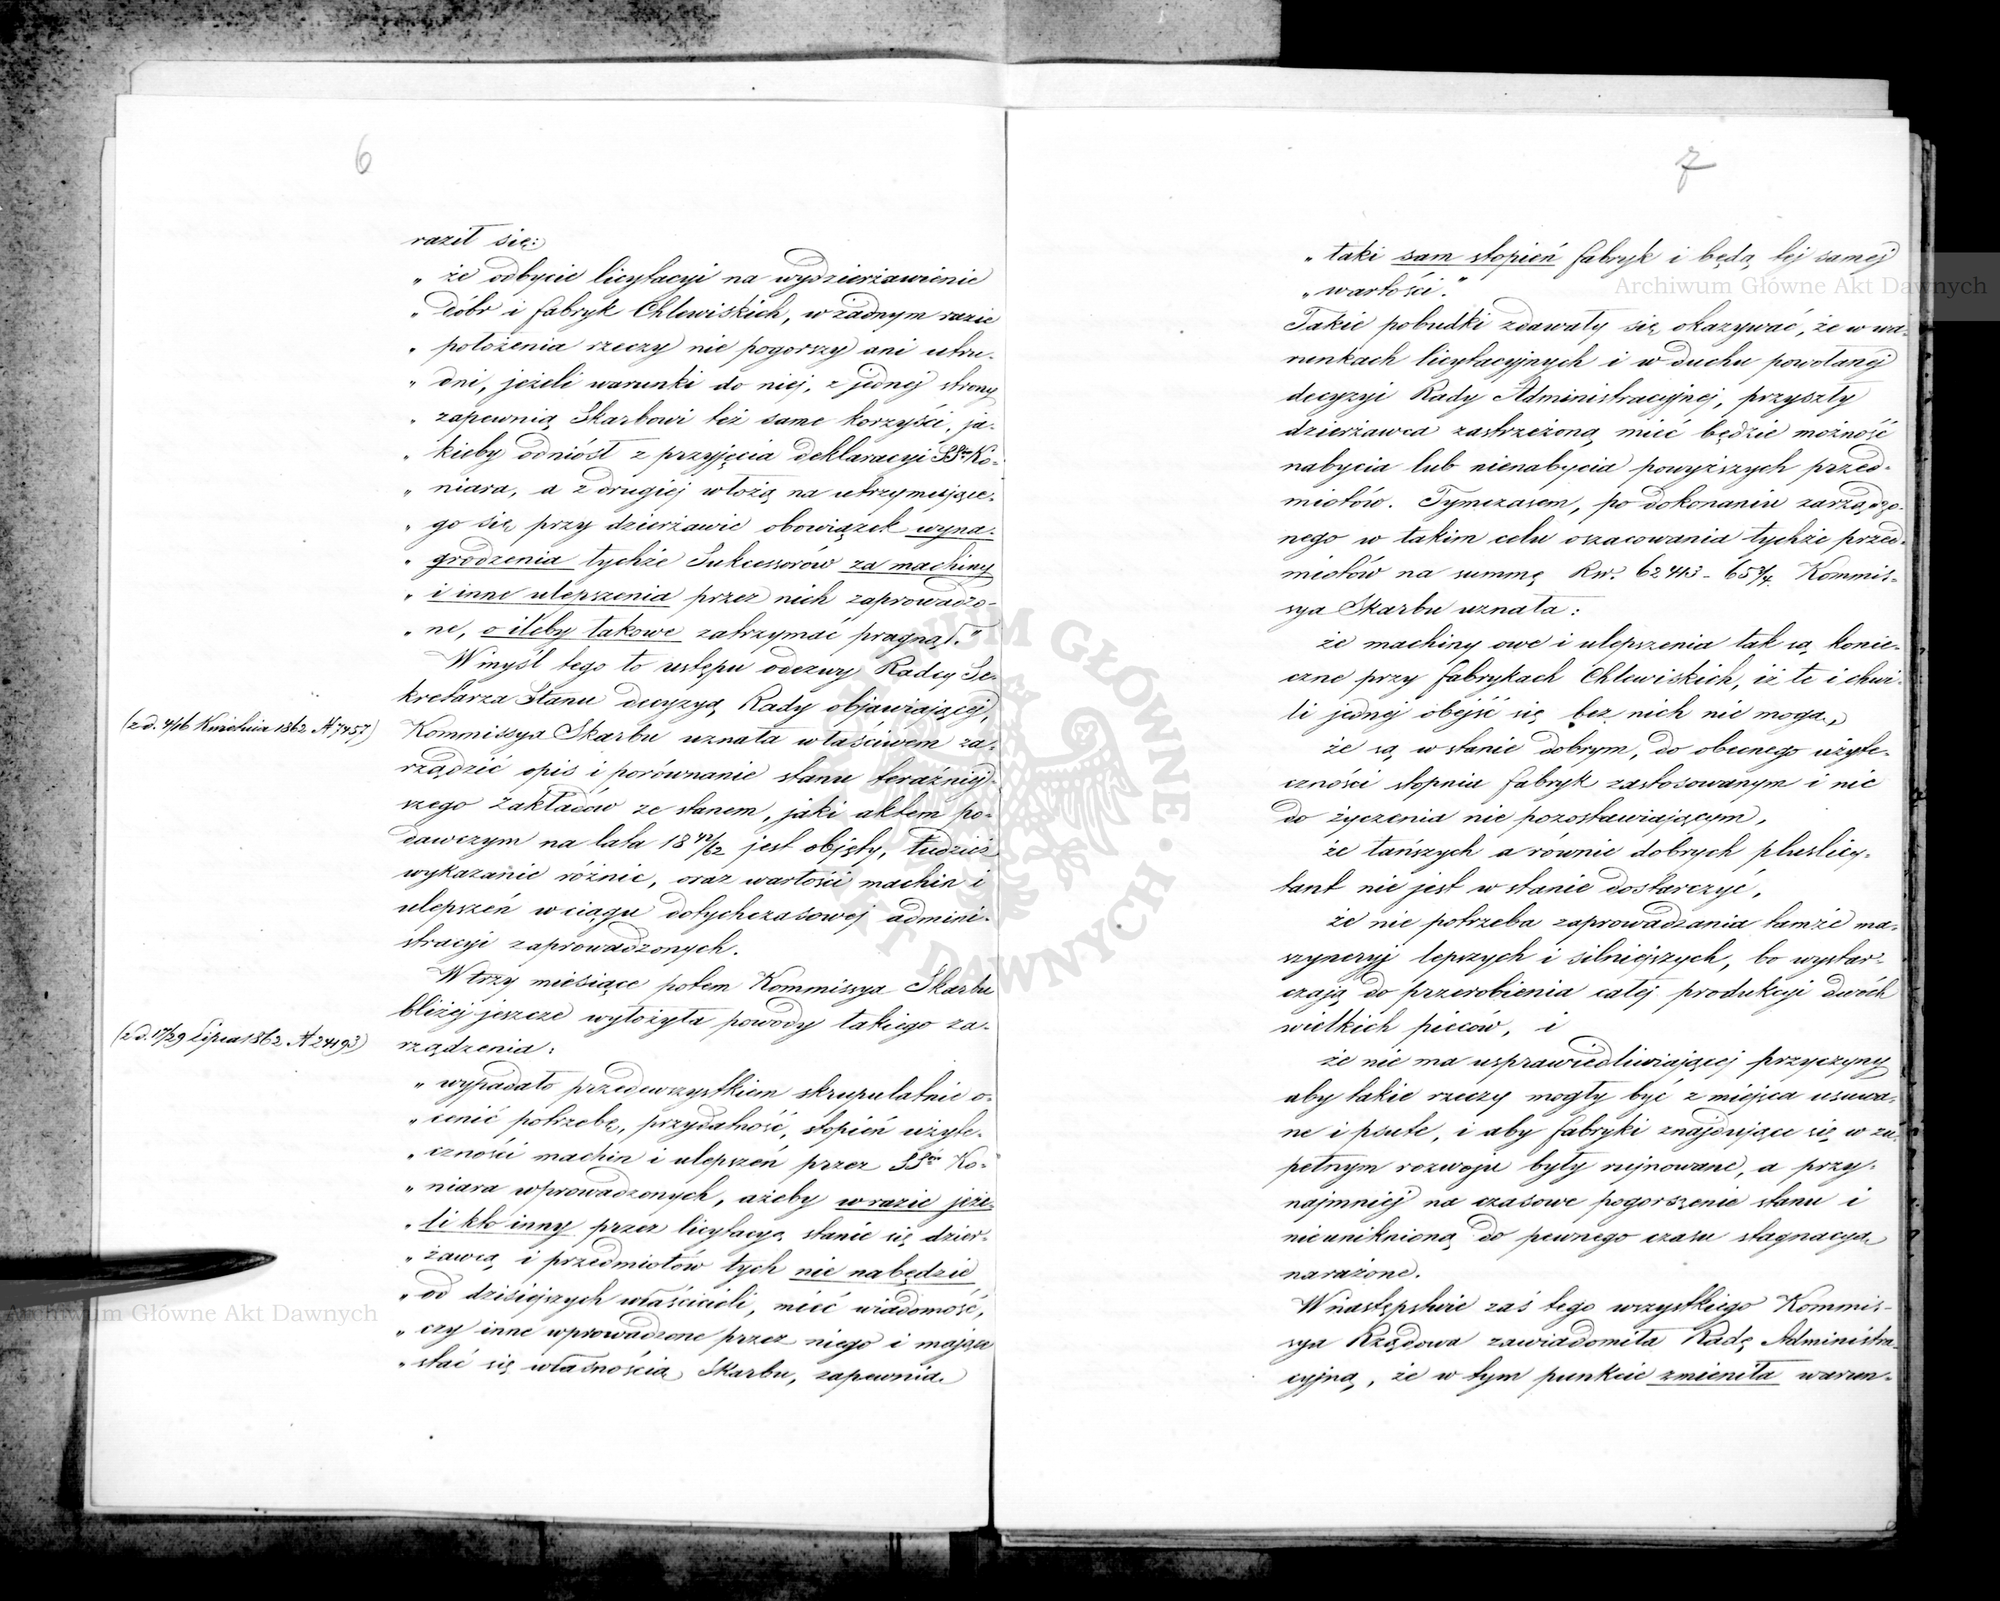 6
raził się:
„ że odbycie licytacyi na wydzierżawienie
„ dóbr i fabryk Chlewiskich, w żadnym razie
„ położenia rzeczy nie pogorszy ani utru-
„ dni, jeżeli warunki do niej, z jednej strony
„ zapewnią Skarbowi też same korzyści, ja-
„ kieby odniósł z przyjęcia deklaracyi SSrów Ko-
„ niara, a z drugiej włożą na utrzymujące-
„ go się przy dzierżawie obowiązek wyna-
„ grodzenia tychże Sukcessorów za machiny
„ i inne ulepszenia przez nich zaprowadzo-
„ ne, o ileby takowe zatrzymać pragnął."
W myśl tego to ustępu odezwy Radcy Se-
kretarza Stanu decyzyą Rady objawiającej,
(z d. 4/16 Kwietnia 1862 N 7457)
Kommissya Skarbu uznała właściwem za-
rządzić opis i porównanie stanu teraźniej-
szego zakładów ze stanem, jaki aktem po-
dawczym na lata 18 42/62 jest objęty, tudzież
wykazanie różnic, oraz wartości machin i
ulepszeń w ciągu dotychczasowej admini-
stracyi zaprowadzonych.
W trzy miesiące potem Kommissya Skarbu
(z d. 17/29 Lipca 1862 N 24193)
bliżej jeszcze wyłożyła powody takiego za-
rządzenia:
„ wypadało przedewszystkiem skrupulatnie o-
„ cenić potrzebę, przydatność, stopień użyte-
„ czności machin i ulepszeń przez SSrów Ko-
„ niara wprowadzonych, ażeby w razie jeże-
„ li kto inny przez licytacyą stanie się dzier-
„ żawcą i przedmiotów tych nie nabędzie
„ od dzisiejszych właścicieli, mieć wiadomość,
„ czy inne wprowadzone przez niego i mające
„ stać się własnością Skarbu, zapewnią
7
„ taki sam stopień fabryk i będą tej samej
„ wartości."
Takie pobudki zdawały się okazywać, że w wa-
runkach licytacyjnych i w duchu powołanej
decyzyi Rady Administracyjnej, przyszły
dzierżawca zastrzeżoną mieć będzie możność
nabycia lub nienabycia powyższych przed-
miotów. Tymczasem, po dokonaniu zarządzo-
nego w takim celu oszacowania tychże przed-
miotów na summę Rsr. 62413 - 65 3/4. Kommis-
sya Skarbu uznała:
że machiny owe i ulepszenia tak są konie-
czne przy fabrykach Chlewiskich, iż te i chwi-
li jednej obejść się bez nich nie mogą,
że są w stanie dobrym, do obecnego użyte-
czności stopnia fabryk zastosowanym i nic
do życzenia nie pozostawiającym,
że tańszych a równie dobrych pluslicy-
tant nie jest w stanie dostarczyć,
że nie potrzeba zaprowadzania tamże ma-
szyneryj lepszych i silniejszych, bo wystar-
czają do przerobienia całej produkcyi dwóch
wielkich pieców, i
że nie ma usprawiedliwiającej przyczyny
aby takie rzeczy mogły być z miejsca usuwa-
ne i psute, i aby fabryki znajdujące się w zu-
pełnym rozwoju były rujnowane, a przy-
najmniej na czasowe pogorszenie stanu i
nieuniknioną do pewnego czasu stagnacyą
narażone.
W następstwie zaś tego wszystkiego Kommis-
sya Rządowa zawiadomiła Radę Administra-
cyjną, że w tym punkcie zmieniła warun-
Archiwum Główne Akt Dawnych
Archiwum Główne Akt Dawnych
ARCHIWUM GŁÓWNE AKT DAWNYCH